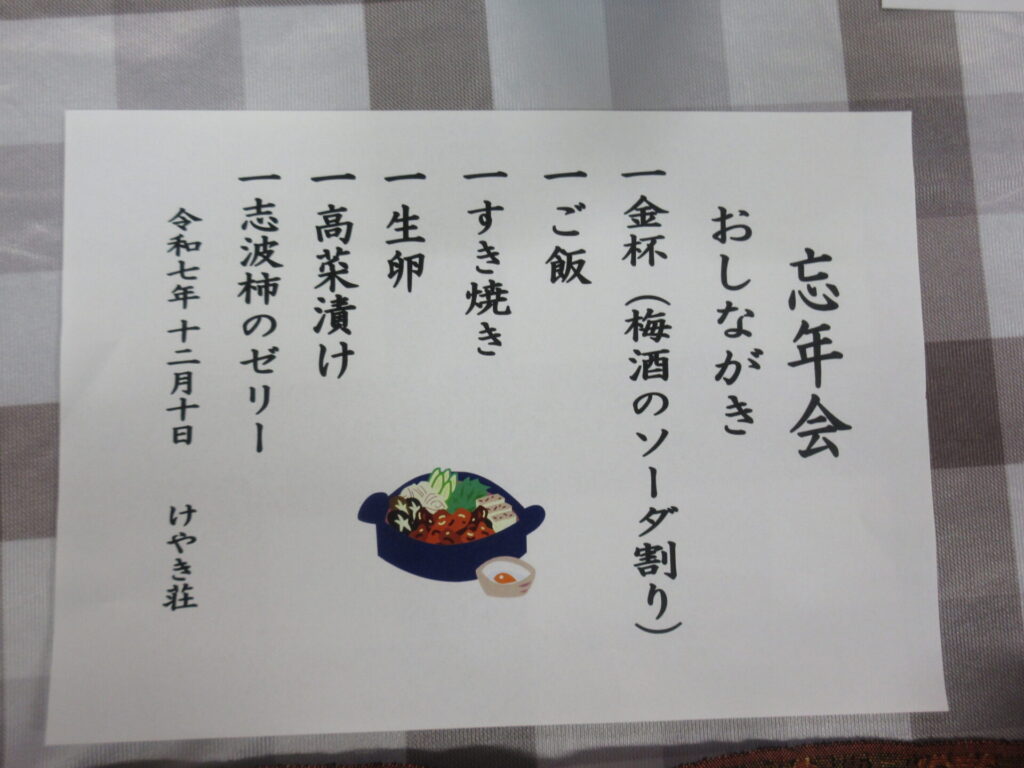 忘年会
おしながき
一金杯（梅酒のソーダ割り）
一ご飯
一すき焼き
一生卵
一高菜漬け
一志波柿のゼリー
令和七年十二月十日　けやき荘